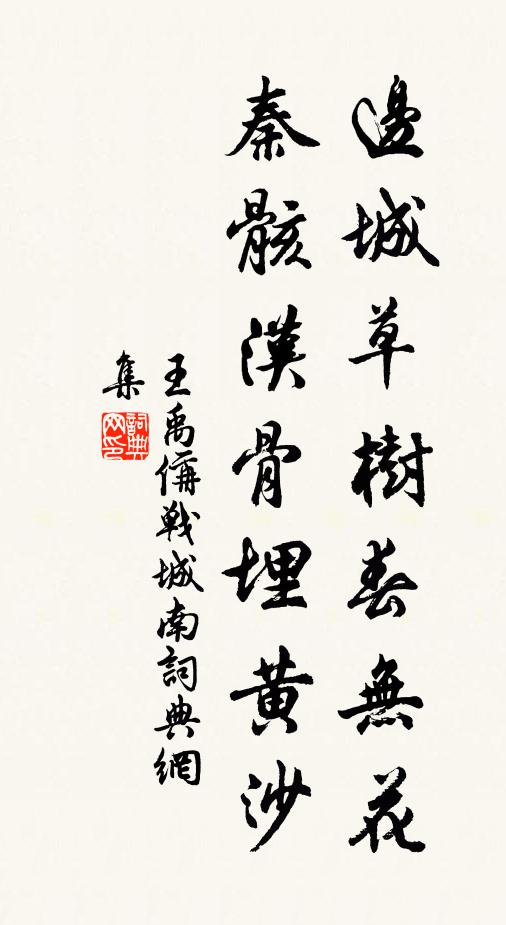 邊城草樹春無花
秦骸漢骨埋黃沙
王禹偁戰城南詞典網
集
詞典网印